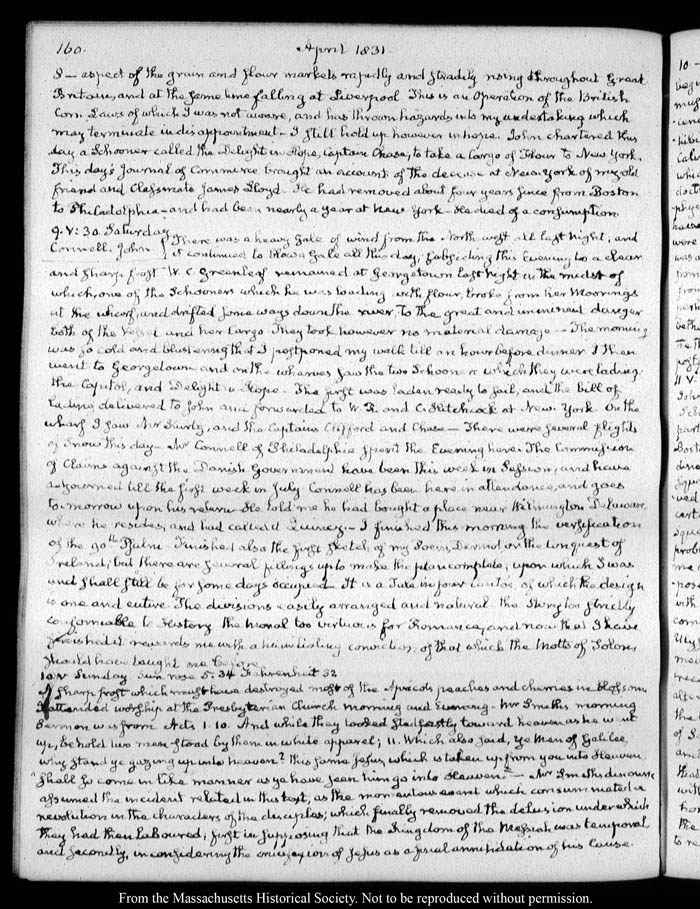 160.
April 1831.
S— aspect of the grain and flour markets rapidly and steadily rising throughout Great
Britain, and at the same time falling at Liverpool This is an Operation of the British
Corn Laws of which I was not aware, and has thrown hazards into my undertaking which
may terminate in disappointment. I still hold up however in hope. John chartered this
day a Schooner called the Delight in Hope, Captain Chase, to take a cargo of Flour to New York.
This day's Journal of Commerce brought an account of the decease at New York of my old
friend and Classmate James Lloyd. He had removed about four years since from Boston
to Philadelphia—and had been nearly a year at New York He died of a consumption.
9. V: 30. Saturday
Connell. John
There was a heavy Gale of wind from the North west all last Night, and
it continued to blow a Gale all this day, subsiding this Evening to a clear
and sharp frost W. C. Greenleaf remained at Georgetown last night in the midst of
which, one of the Schooners which he was loading with flour, broke from her Moorings
at the wharf, and drifted some ways down the river, to the great and imminent danger
both of the Vessel and her Cargo They took however no material damage— The morning
was so cold and blustering that I postponed my walk till an hour before dinner I then
went to Georgetown and on the wharves saw the two Schooners which they were lading.
the Capitol, and Delight in Hope. The first was laden ready to sail, and the bill of
lading delivered to John and forwarded to W. R. and C. Hitchcock at New York On the
wharf I saw Mr Kurtz, and the Captains Clifford and Chase— There were several flights
of Snow this day— Mr Connell of Philadelphia spent the Evening here. The Commission
of Claims against the Danish Government have been this week in Session, and have
adjourned till the first week in July Connell has been here in attendance, and goes
to-morrow upon his return He told me he had bought a place near Wilmington Delaware
where he resides, and had called it Quincy— I finished this morning the versification
of the 90th Psalm Finished also the first sketch of my Poem, Dermot, or the Conquest of
Ireland; but there are several fillings up to make the plan complete, upon which I was
and shall still be for some days occupied It is a Tale in four cantos, of which the design
is one and entire The divisions easily arranged and natural the Story too strictly
conformable to History the moral too virtuous for Romance, and now that I have
finished it rewards me with a humiliating conviction of that which the Motto of Solon,
should have taught me before.
10. V Sunday Sun rose 5. 34 Fahrenheit 32
A sharp frost which must have destroyed most of the Apricots peaches and cherries in blossom
I attended worship at the Presbyterian Church morning and Evening. Mr Smith's morning
Sermon was from Acts 1. 10. And while they looked steadfastly toward heaven as he went
up, behold two men stood by them in white apparel; 11. Which also said, ye Men of Galilee,
why stand ye gazing up into heaven? this same Jesus, which is taken up from you into Heaven,
shall so come in like manner as ye have seen him go into Heaven"— Mr Smith's discourse
assumed the incident related in this text, as the momentous event which consummated a
revolution in the characters of the disciples; which finally removed the delusion under which
they had then laboured; first in supposing that the kingdom of the Messiah was temporal
and secondly, in considering the crucifixion of Jesus as a final annihilation of his Cause.
From the Massachusetts Historical Society. Not to be reproduced without permission.